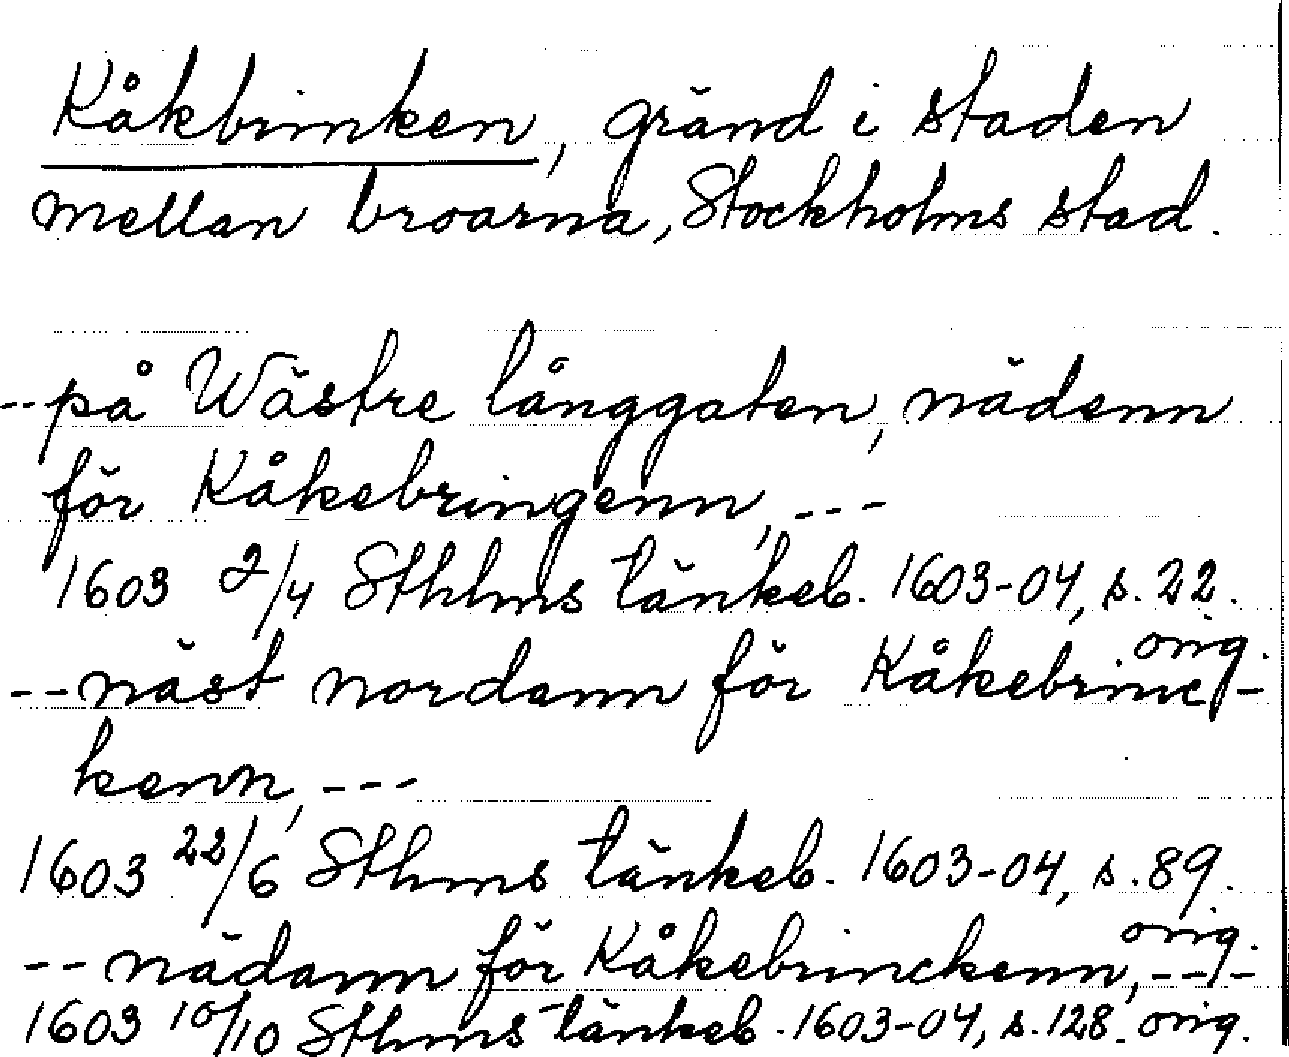 Kåkbrinken, gränd i staden
mellan broarna, Stockholms stad.
--på Wästre långgaten, nädenn
för Kåkebringenn, ---
1603 2/4 Sthlms tänkeb. 1603-04, s. 22.
orig.
--näst nordann för Kåkebrinc-
kenn, ---
1603 22/6 Sthms tänkeb. 1603-04, s. 89.
orig.
-- nädann för Kåkebrinckenn, ---
1603 10/10 Sthms tänkeb. 1603-04, s. 128. orig.